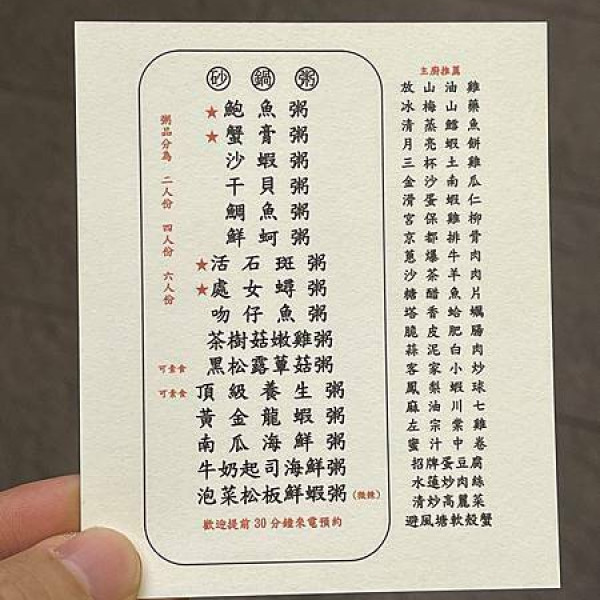 砂鍋粥
粥品分為 二人份 四人份 六人份
★鮑魚粥
★蟹膏粥
沙蝦粥
干貝粥
鯛魚粥
鮮蚵粥
★活石斑粥
★處女蟳粥
吻仔魚粥
茶樹菇嫩雞粥
可素食 黑松露蕈菇粥
可素食 頂級養生粥
黃金龍蝦粥
南瓜海鮮粥
牛奶起司海鮮粥
泡菜松板鮮蝦粥(微辣)
歡迎提前30分鐘來電預約
主廚推薦
放山油雞
冰梅山藥
清蒸鱈魚
月亮蝦餅
三杯土雞
金沙南瓜
滑蛋蝦仁
宮保雞柳
京都排骨
蔥爆牛肉
沙茶羊肉
糖醋魚片
塔香蛤蠣
脆皮肥腸
蒜泥白肉
客家小炒
鳳梨蝦球
麻油川七
左宗棠雞
蜜汁中卷
招牌蛋豆腐
水蓮炒肉絲
清炒高麗菜
避風塘軟殼蟹